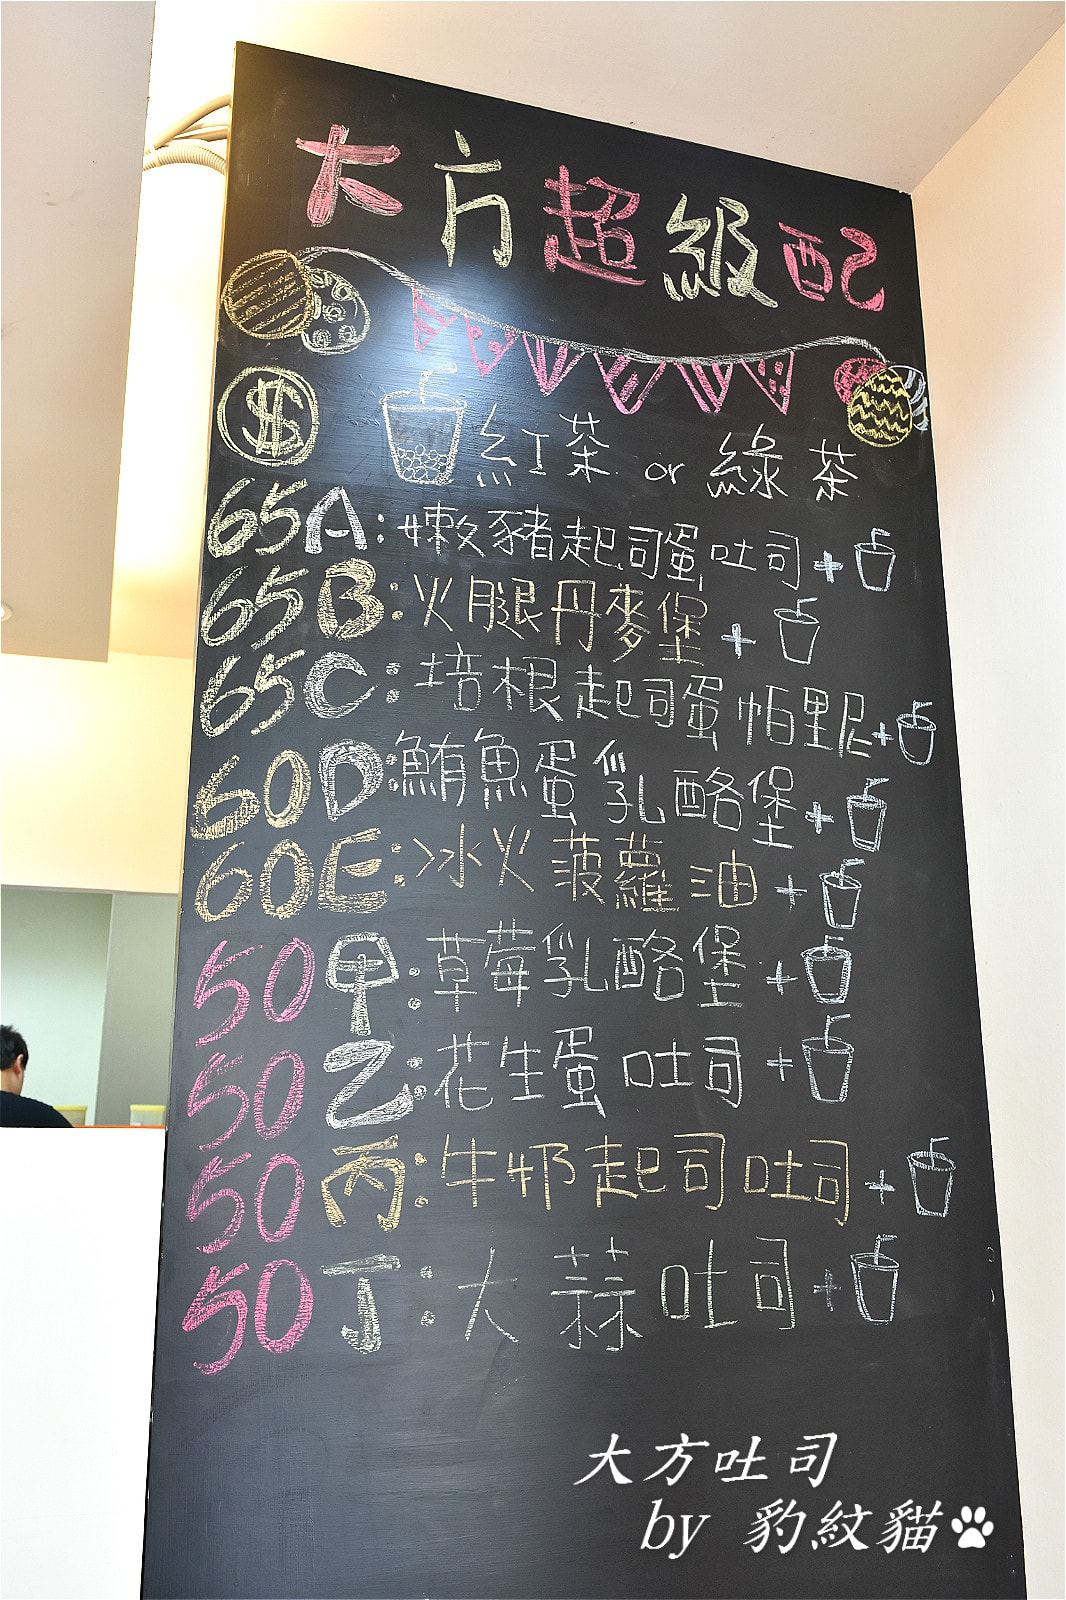 大方超級配
$ 紅茶 or 綠茶
65 A:嫩豬起司蛋吐司+
65 B:火腿丹麥堡+
65 C:培根起司蛋帕里尼+
60 D:鮪魚蛋乳酪堡+
60 E:冰火菠蘿油+
50 甲:草莓乳酪堡+
50 乙:花生蛋吐司+
50 丙:牛奶起司吐司+
50 丁:大蒜吐司+
大方吐司
by 豹紋貓